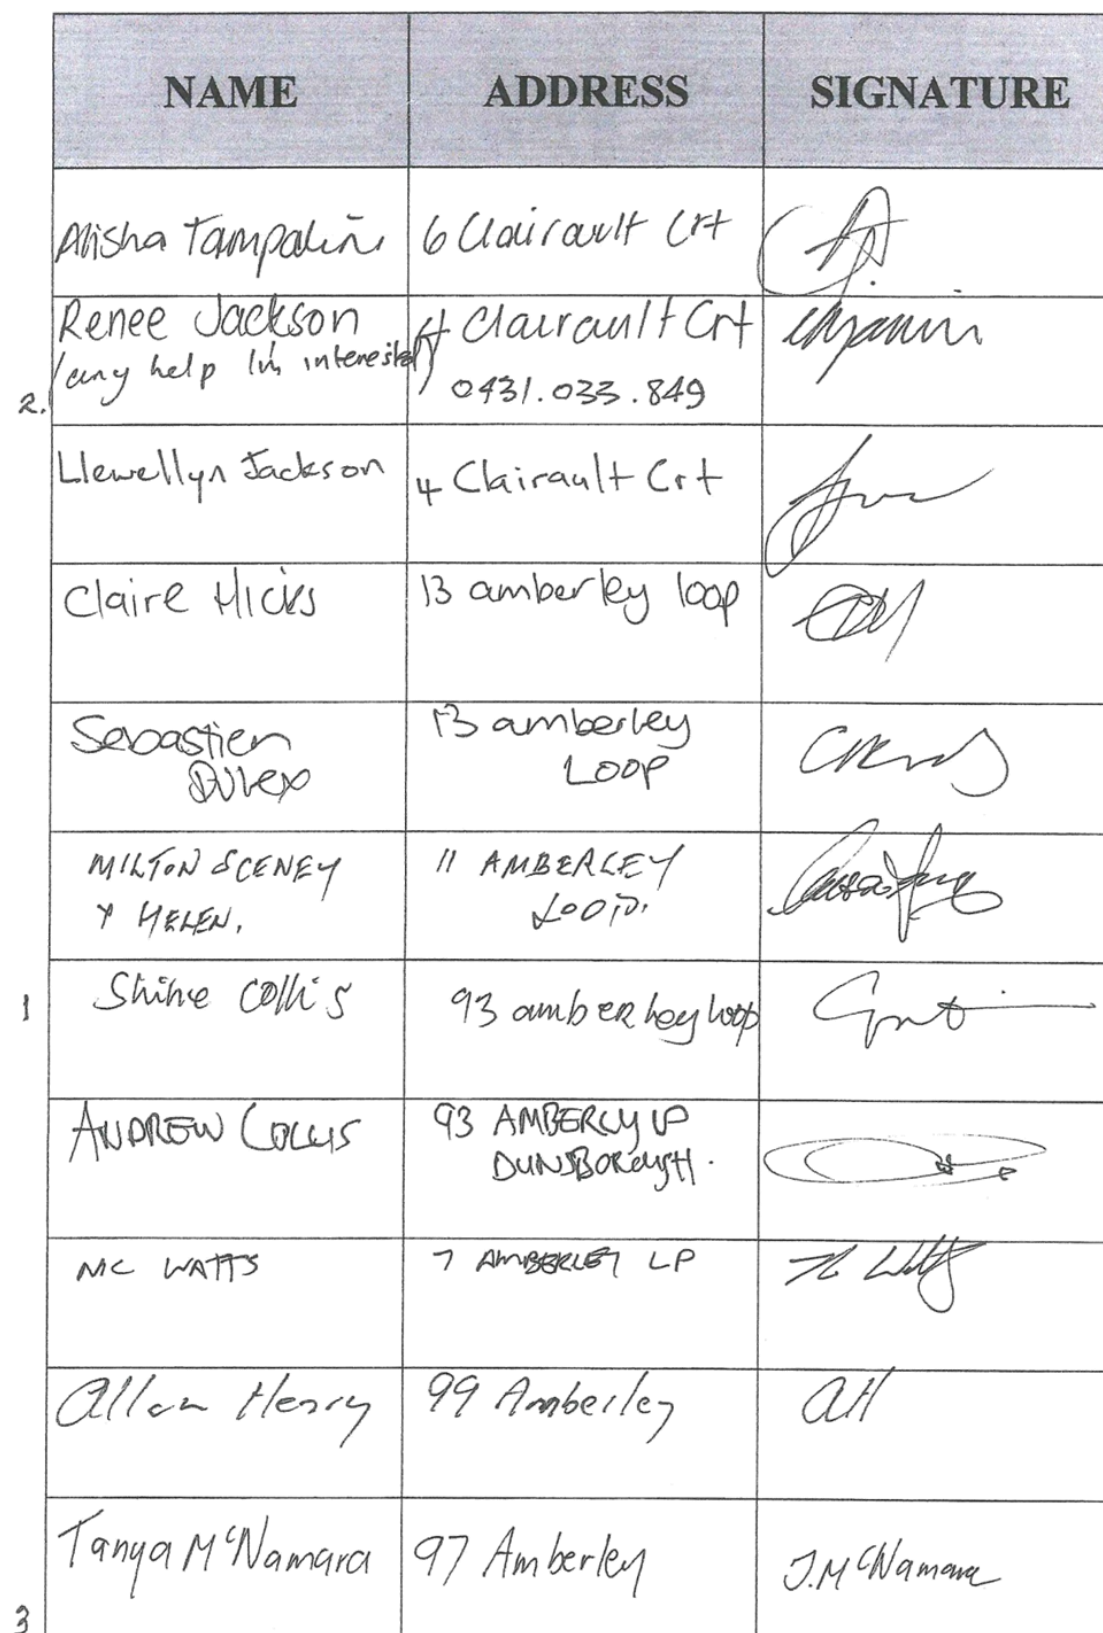 NAME ADDRESS SIGNATURE
Alisha Tampalini 6 Clairault Crt
Renee Jackson 4 Clairault Crt
(any help I'm interested) 0431.033.849
2.
Llewellyn Jackson 4 Clairault Crt
Claire Hicks 13 amberley loop
Sebastien 13 amberley
LOOP
MILTON SCENEY 11 AMBERLEY
& HELEN. LOOP.
1 Shine Collis 93 amberley loop
ANDREW COLLIS 93 AMBERLY LP
DUNSBOROUGH.
MC WATTS 7 AMBERLEY LP
Allan Henry 99 Amberley AH
Tanya McNamara 97 Amberley T.McNamara
3